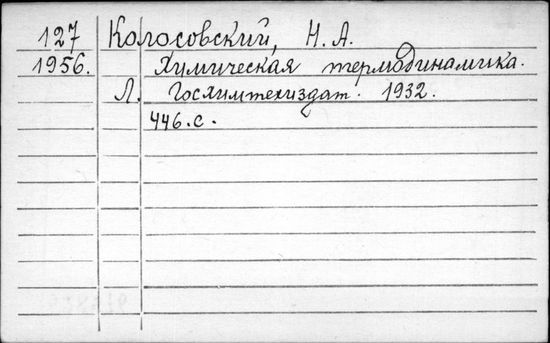 127 Колосовский, Н. А.
1956. Химическая термодинамика.
Л. Госхимтехиздат. 1932.
446.с.